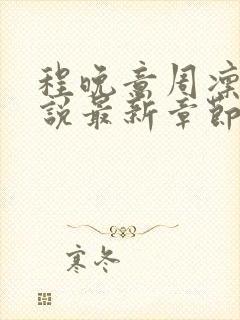 程晚意周凛
說最新章節
寒冬